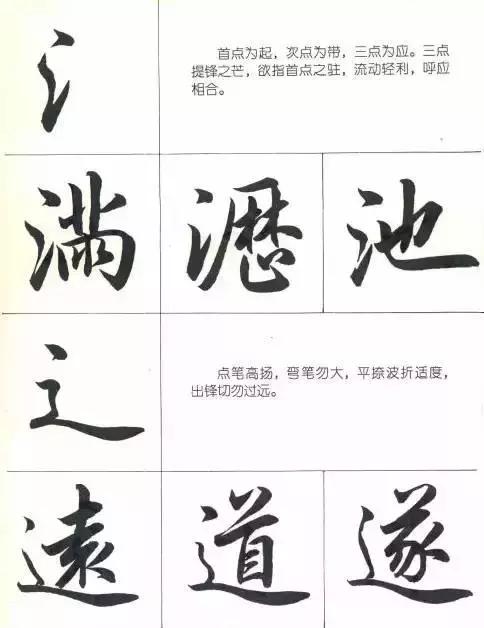 氵
首点为起，次点为带，三点为应。三点
提锋之芒，欲指首点之驻，流动轻利，呼应
相合。
满 瀝 池
辶
点笔高扬，弯笔勿大，平捺波折适度，
出锋切勿过远。
遠 道 遂